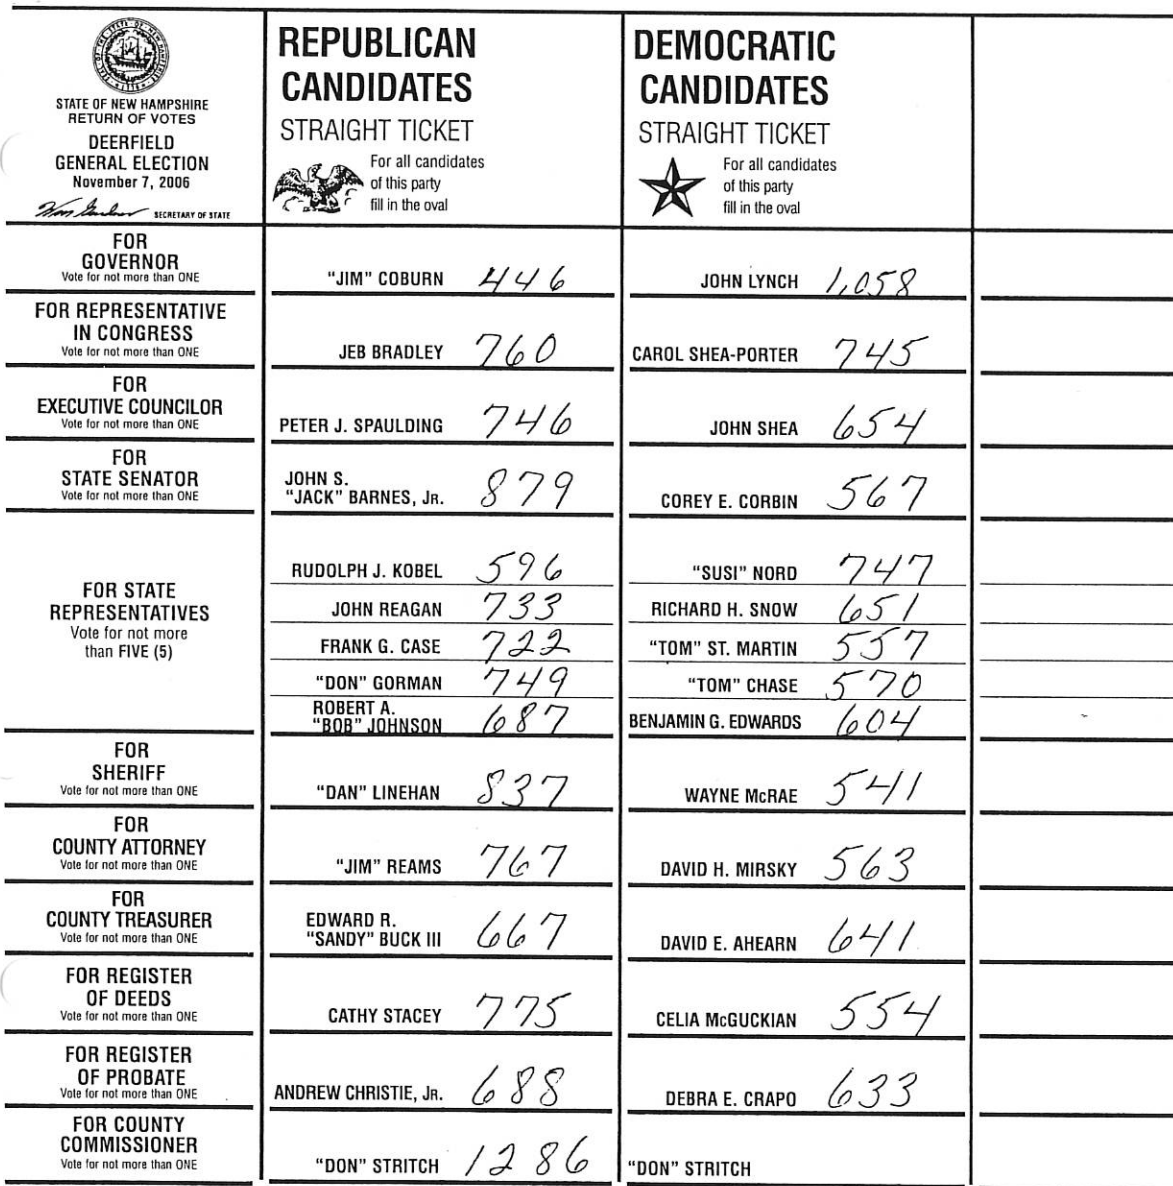 STATE OF NEW HAMPSHIRE
RETURN OF VOTES
DEERFIELD
GENERAL ELECTION
November 7, 2006
SECRETARY OF STATE
REPUBLICAN
CANDIDATES
STRAIGHT TICKET
For all candidates
of this party
fill in the oval
DEMOCRATIC
CANDIDATES
STRAIGHT TICKET
For all candidates
of this party
fill in the oval
FOR
GOVERNOR
Vote for not more than ONE
"JIM" COBURN 446
JOHN LYNCH 1,058
FOR REPRESENTATIVE
IN CONGRESS
Vote for not more than ONE
JEB BRADLEY 760
CAROL SHEA-PORTER 745
FOR
EXECUTIVE COUNCILOR
Vote for not more than ONE
PETER J. SPAULDING 746
JOHN SHEA 654
FOR
STATE SENATOR
Vote for not more than ONE
JOHN S.
"JACK" BARNES, Jr. 879
COREY E. CORBIN 567
FOR STATE
REPRESENTATIVES
Vote for not more
than FIVE (5)
RUDOLPH J. KOBEL 596
"SUSI" NORD 747
JOHN REAGAN 733
RICHARD H. SNOW 651
FRANK G. CASE 722
"TOM" ST. MARTIN 557
"DON" GORMAN 749
"TOM" CHASE 570
ROBERT A.
"BOB" JOHNSON 687
BENJAMIN G. EDWARDS 604
FOR
SHERIFF
Vote for not more than ONE
"DAN" LINEHAN 837
WAYNE McRAE 541
FOR
COUNTY ATTORNEY
Vote for not more than ONE
"JIM" REAMS 767
DAVID H. MIRSKY 563
FOR
COUNTY TREASURER
Vote for not more than ONE
EDWARD R.
"SANDY" BUCK III 667
DAVID E. AHEARN 641
FOR REGISTER
OF DEEDS
Vote for not more than ONE
CATHY STACEY 775
CELIA McGUCKIAN 554
FOR REGISTER
OF PROBATE
Vote for not more than ONE
ANDREW CHRISTIE, Jr. 688
DEBRA E. CRAPO 633
FOR COUNTY
COMMISSIONER
Vote for not more than ONE
"DON" STRITCH 1286
"DON" STRITCH